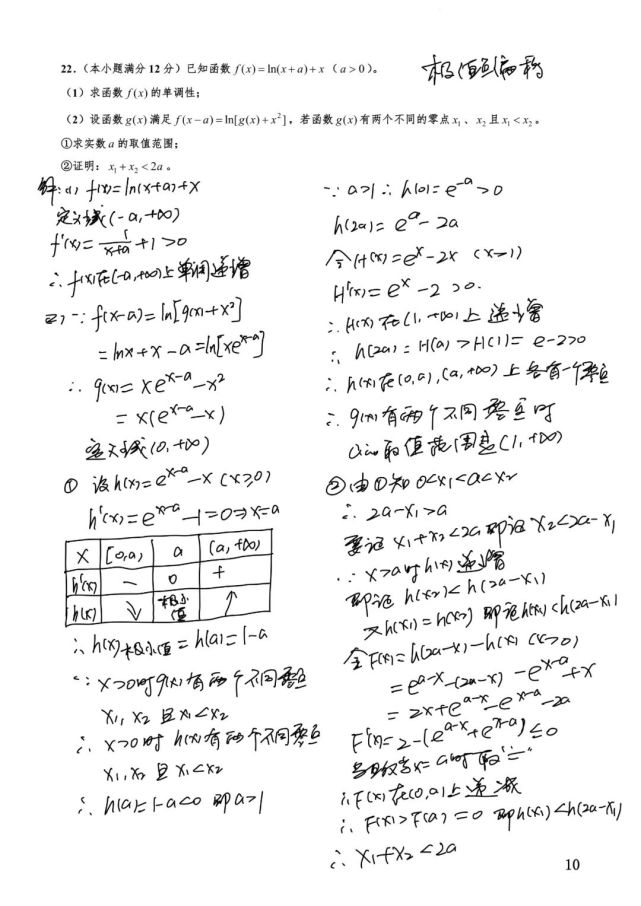 22.（本小题满分 12 分）已知函数 f(x) = ln(x + a) + x （a > 0）。
极值点偏移
（1）求函数 f(x) 的单调性；
（2）设函数 g(x) 满足 f(x − a) = ln[g(x) + x²]，若函数 g(x) 有两个不同的零点 x₁、x₂ 且 x₁ < x₂。
①求实数 a 的取值范围；
②证明：x₁ + x₂ < 2a。
解:(1) f(x)=ln(x+a)+x
定义域(-a,+∞)
f'(x)=1/(x+a)+1>0
∴f(x)在(-a,+∞)上单调递增
(2)∵f(x-a)=ln[g(x)+x²]
=lnx+x-a=ln[xe^(x-a)]
∴g(x)=xe^(x-a)-x²
=x(e^(x-a)-x)
定义域(0,+∞)
① 设h(x)=e^(x-a)-x (x≥0)
h'(x)=e^(x-a)-1=0⇒x=a
x [0,a) a (a,+∞)
h'(x) - 0 +
h(x) ↘ 极小值 ↗
∴h(x)极小值=h(a)=1-a
∵x>0时g(x)有两个不同零点
x₁,x₂ 且x₁<x₂
∴x>0时 h(x)有两个不同零点
x₁,x₂ 且x₁<x₂
∴h(a)=1-a<0 即a>1
∵a>1∴h(0)=e^(-a)>0
h(2a)=e^a-2a
令H(x)=e^x-2x (x>1)
H'(x)=e^x-2>0.
∴H(x)在(1,+∞)上递增
∴h(2a)=H(a)>H(1)=e-2>0
∴h(x)在(0,a),(a,+∞)上各有一个零点
∴g(x)有两个不同零点时
a的取值范围是(1,+∞)
②由①知0<x₁<a<x₂
∴2a-x₁>a
要证x₁+x₂<2a即证x₂<2a-x₁
∵x>a时h(x)递增
即证h(x₂)<h(2a-x₁)
又h(x₁)=h(x₂) 即证h(x₁)<h(2a-x₁)
令F(x)=h(2a-x)-h(x) (x>0)
=e^(a-x)-(2a-x)-e^(x-a)+x
=2x+e^(a-x)-e^(x-a)-2a
F'(x)=2-(e^(a-x)+e^(x-a))≤0
当且仅当x=a时取"="
∴F(x)在(0,a)上递减
∴F(x₁)>F(a)=0 即h(x₁)<h(2a-x₁)
∴x₁+x₂<2a
10